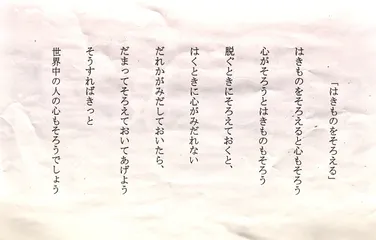 「はきものをそろえる」
はきものをそろえると心もそろう
心がそろうとはきものもそろう
脱ぐときにそろえておくと、
はくときに心がみだれない
だれかがみだしておいたら、
だまってそろえておいてあげよう
そうすればきっと
世界中の人の心もそろうでしょう